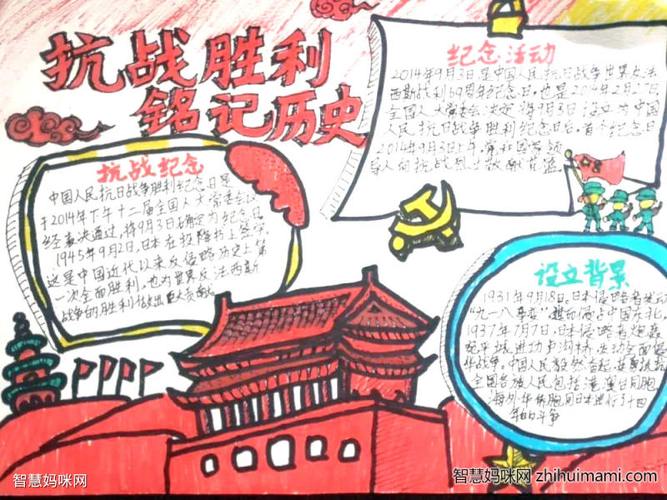 抗战胜利
铭记历史
纪念活动
2014年9月3日是中国人民抗日战争世界反法
西斯战利69周年纪念日,也是2014年2月27日
全国人大常委会决定将9月3日设立为中国
人民抗日战争胜利纪念日后,首个纪念日
2014年9月3日上午,
抗战纪念
中国人民抗日战争胜利纪念日是
于2014年下午十二届全国人大常委会
经表决通过,将9月3日确定为纪念日
1945年9月2日,日本在投降书上签字
这是中国近代以来反侵略历史上第
一次全面胜利,也为世界反法西斯
战争的胜利做出巨大贡献
设立背景
1931年9月18日,日本侵略者发动
"九一八事变",中国东北。
1937年7月7日,日本侵略者炮轰
进攻卢沟桥,发动全面侵
华战争。中国人民毅然奋起,
全国各族人民包括港澳台同胞
海外华侨同胞同日本进行了十四
年的斗争
智慧妈咪网
智慧妈咪网 zhihuimami.com